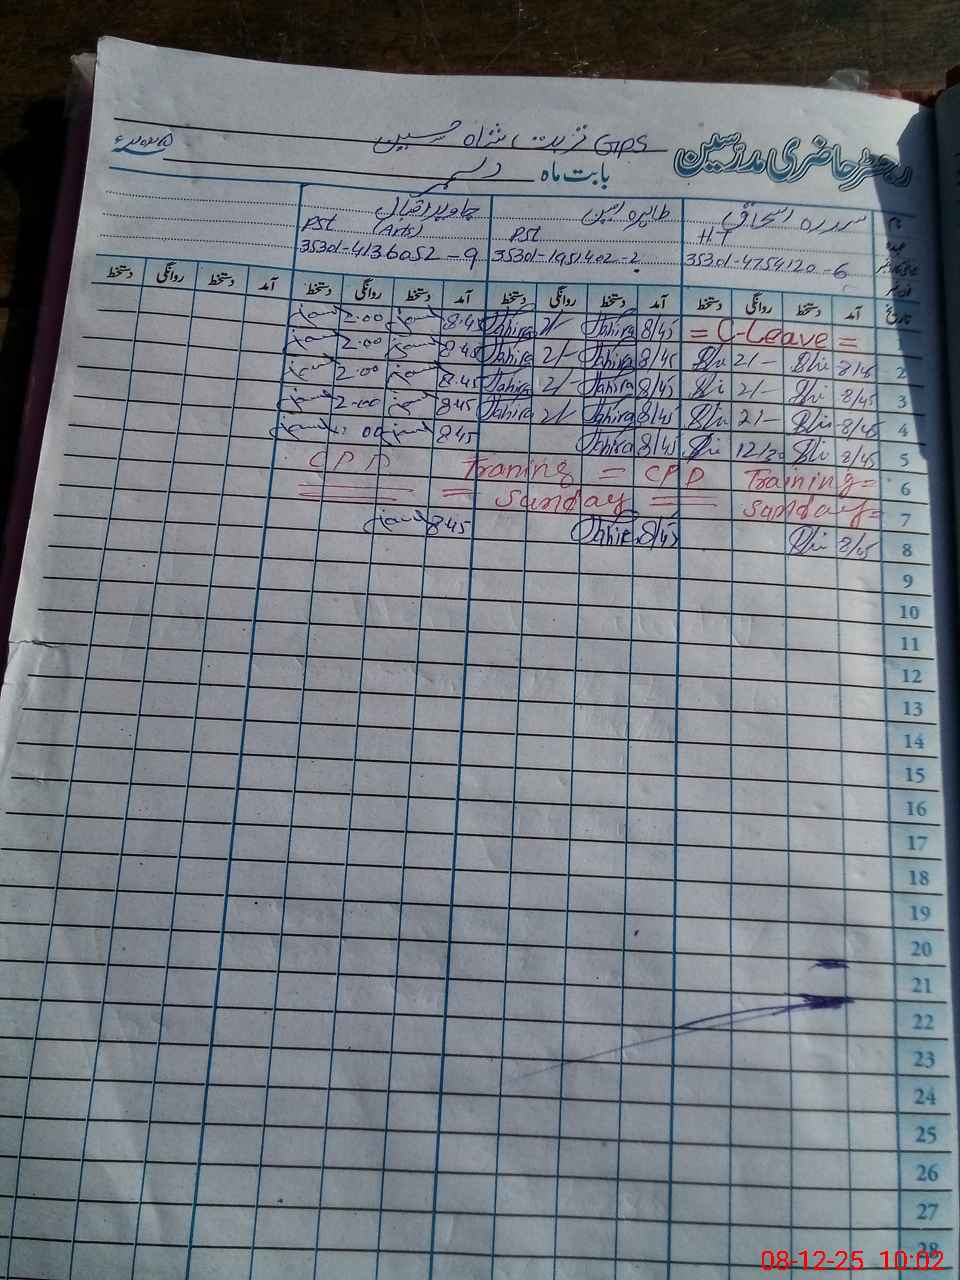 رجسٹر حاضری مدرسین GPS تربت شاہ حسین
بابت ماہ دسمبر ۲۰۲۵ء
سدرہ اسحاق طاہرہ امین جاوید اقبال
HT PST PST (Arts)
35301-4754120-6 35301-1951402-2 35301-4136052-9
تاریخ آمد دستخط روانگی دستخط آمد دستخط روانگی دستخط آمد دستخط روانگی دستخط آمد دستخط روانگی دستخط
= C-Leave = 8/45 Tahira 2/- Tahira 8.45 2.00
2 8/45 2/- 8/45 Tahira 2/- Tahira 8.45 2.00
3 8/45 2/- 8/45 Tahira 2/- Tahira 8.45 2.00
4 8/45 2/- 8/45 Tahira 2/- Tahira 845 2.00
5 8/45 12/30 8/45 Tahira 845 12.00
6 CPD Traning = CPD Training =
7 = Sunday = Sunday =
8 8/45 8/45 Tahira 8.45
9
10
11
12
13
14
15
16
17
18
19
20
21
22
23
24
25
26
27
28
08-12-25 10:02